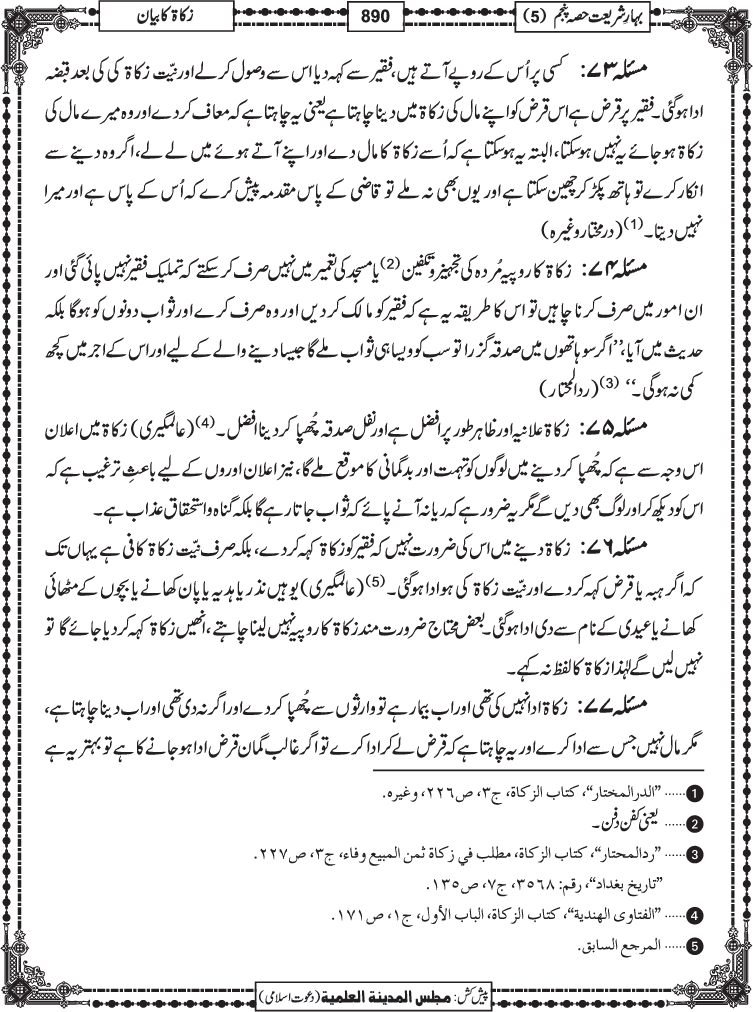 بہارِ شریعت حصہ پنجم (5)
890
زکاۃ کا بیان
مسئلہ ۷۳: کسی پر اُس کے روپے آتے ہیں، فقیر سے کہہ دیا اس سے وصول کرلے اور نیّت زکاۃ کی کی بعد قبضہ
ادا ہوگئی۔ فقیر پر قرض ہے اس قرض کو اپنے مال کی زکاۃ میں دینا چاہتا ہے یعنی یہ چاہتا ہے کہ معاف کر دے اور وہ میرے مال کی
زکاۃ ہو جائے یہ نہیں ہوسکتا، البتہ یہ ہوسکتا ہے کہ اُسے زکاۃ کا مال دے اور اپنے آتے ہوئے میں لے لے، اگر وہ دینے سے
انکار کرے تو ہاتھ پکڑ کر چھین سکتا ہے اور یوں بھی نہ ملے تو قاضی کے پاس مقدمہ پیش کرے کہ اُس کے پاس ہے اور میرا
نہیں دیتا۔(1) (درمختار وغیرہ)
مسئلہ ۷۴: زکاۃ کا روپیہ مُردہ کی تجہیز و تکفین(2) یا مسجد کی تعمیر میں نہیں صرف کر سکتے کہ تملیک فقیر نہیں پائی گئی اور
ان امور میں صرف کرنا چاہیں تو اس کا طریقہ یہ ہے کہ فقیر کو مالک کر دیں اور وہ صرف کرے اور ثواب دونوں کو ہوگا بلکہ
حدیث میں آیا، ’’اگر سو ہاتھوں میں صدقہ گزرا تو سب کو ویسا ہی ثواب ملے گا جیسا دینے والے کے لیے اور اس کے اجر میں کچھ
کمی نہ ہوگی۔‘‘ (3) (ردالمحتار)
مسئلہ ۷۵: زکاۃ علانیہ اور ظاہر طور پر افضل ہے اور نفل صدقہ چُھپا کر دینا افضل۔(4) (عالمگیری) زکاۃ میں اعلان
اس وجہ سے ہے کہ چُھپا کر دینے میں لوگوں کو تہمت اور بدگمانی کا موقع ملے گا، نیز اعلان اوروں کے لیے باعثِ ترغیب ہے کہ
اس کو دیکھ کر اور لوگ بھی دیں گے مگر یہ ضرور ہے کہ ریا نہ آنے پائے کہ ثواب جاتا رہے گا بلکہ گناہ و استحقاق عذاب ہے۔
مسئلہ ۷۶: زکاۃ دینے میں اس کی ضرورت نہیں کہ فقیر کو زکاۃ کہہ کر دے، بلکہ صرف نیّت زکاۃ کافی ہے یہاں تک
کہ اگر ہبہ یا قرض کہہ کر دے اور نیّت زکاۃ کی ہو ادا ہوگئی۔(5) (عالمگیری) یوہیں نذر یا ہدیہ یا پان کھانے یا بچوں کے مٹھائی
کھانے یا عیدی کے نام سے دی ادا ہوگئی۔ بعض محتاج ضرورت مند زکاۃ کا روپیہ نہیں لینا چاہتے، انھیں زکاۃ کہہ کر دیا جائے گا تو
نہیں لیں گے لہٰذا زکاۃ کا لفظ نہ کہے۔
مسئلہ ۷۷: زکاۃ ادا نہیں کی تھی اور اب بیمار ہے تو وارثوں سے چُھپا کر دے اور اگر نہ دی تھی اور اب دینا چاہتا ہے،
مگر مال نہیں جس سے ادا کرے اور یہ چاہتا ہے کہ قرض لے کر ادا کرے تو اگر غالب گمان قرض ادا ہو جانے کا ہے تو بہتر یہ ہے
1 ...... "الدرالمختار"، كتاب الزكاة، ج٣، ص٢٢٦، وغيره.
2 ...... یعنی کفن دفن۔
3 ...... "ردالمحتار"، كتاب الزكاة، مطلب في زكاة ثمن المبيع وفاء، ج٣، ص٢٢٧.
"تاريخ بغداد"، رقم: ٣٥٦٨، ج٧، ص١٣٥.
4 ...... "الفتاوى الهندية"، كتاب الزكاة، الباب الأول، ج١، ص١٧١.
5 ...... المرجع السابق.
پیش کش: مجلس المدینة العلمیة (دعوت اسلامی)